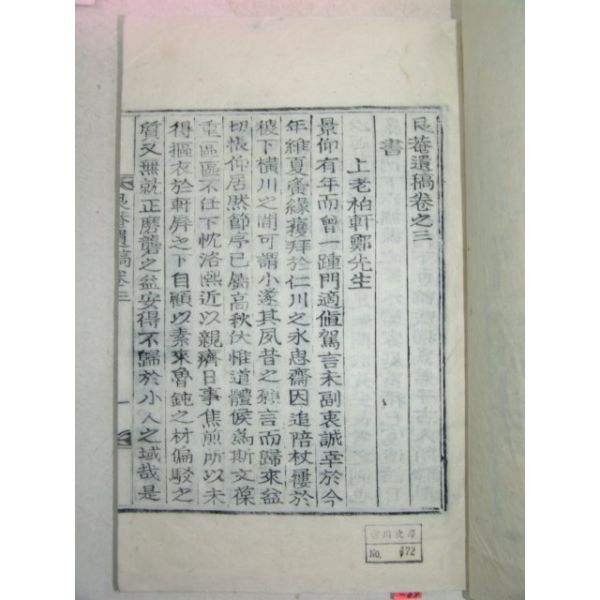 艮菴遺稿卷之三
書
上老柏軒鄭先生
景仰有年而曾一踵門適値駕言未副衷誠幸於今
年維夏夤緣獲拜於仁川之永思齋因追陪杖屨於
被下橫川之間可謂小遂其夙昔之願言而歸來益
切悵仰居然節序已屆高秋伏惟道體候爲斯文葆
重區區不任下忱洛熙近以親癠日事焦煎所以未
得摳衣於軒屏之下自顧以素來魯鈍之材偏駁之
質又無就正磨礱之益安得不歸於小人之域哉是
艮菴遺稿 卷三
一
文庫
No. 472